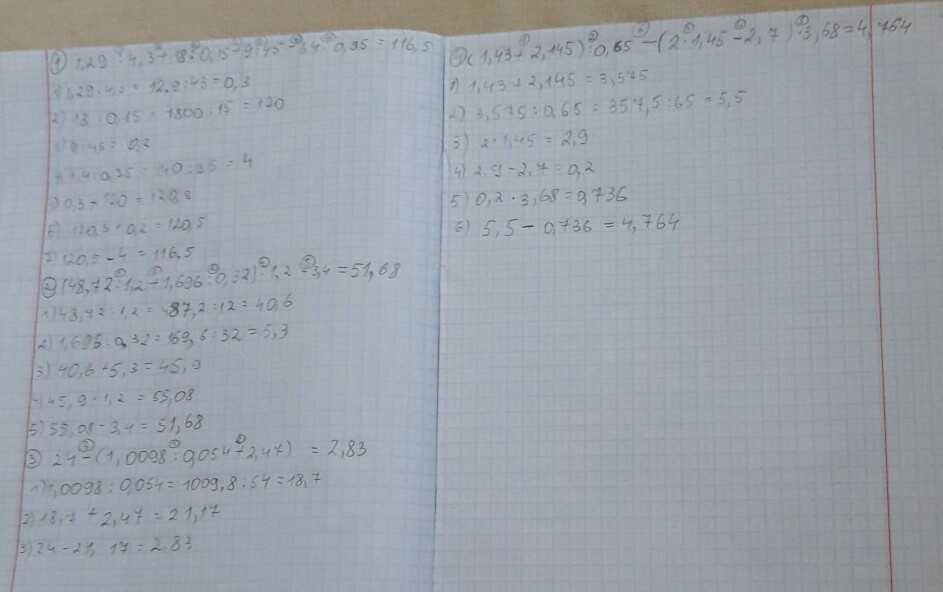 ① 1,29 : 4,3 + 18 : 0,15 + 9 : 45 - 1,4 : 0,35 = 116,5
1) 1,29 : 4,3 = 12,9 : 43 = 0,3
2) 18 : 0,15 = 1800 : 15 = 120
3) 9 : 45 = 0,2
4) 1,4 : 0,35 = 140 : 35 = 4
5) 0,3 + 120 = 120,3
6) 120,3 + 0,2 = 120,5
7) 120,5 - 4 = 116,5
② (48,72 : 1,2 + 1,696 : 0,32) · 1,2 - 3,4 = 51,68
1) 48,72 : 1,2 = 487,2 : 12 = 40,6
2) 1,696 : 0,32 = 169,6 : 32 = 5,3
3) 40,6 + 5,3 = 45,9
4) 45,9 · 1,2 = 55,08
5) 55,08 - 3,4 = 51,68
③ 24 - (1,0098 : 0,054 + 2,47) = 2,83
1) 1,0098 : 0,054 = 1009,8 : 54 = 18,7
2) 18,7 + 2,47 = 21,17
3) 24 - 21,17 = 2,83
(1,43 + 2,145) : 0,65 - (2 · 1,45 - 2,7) · 3,68 = 4,764
1) 1,43 + 2,145 = 3,575
2) 3,575 : 0,65 = 357,5 : 65 = 5,5
3) 2 · 1,45 = 2,9
4) 2,9 - 2,7 = 0,2
5) 0,2 · 3,68 = 0,736
6) 5,5 - 0,736 = 4,764